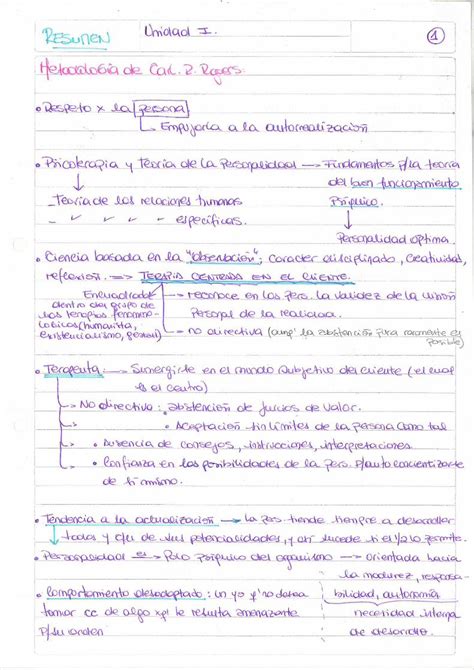 RESUMEN Unidad I. 1
Metodología de Carl. R. Rogers.
• Respeto x la persona
Empujarla a la autorrealización
• Psicoterapia y Teoría de la Personalidad → Fundamentos p/la teoría
del buen funcionamiento
Teoría de las relaciones humanas Psíquico.
- ✓ ✓ ✓ específicas.
Personalidad óptima.
• Ciencia basada en la "observación"; caracter disciplinado, creatividad,
reflexión. => TERAPIA CENTRADA EN EL CLIENTE.
Encuadrada → reconoce en las pers. la validez de la visión
dentro del grupo de Personal de la realidad.
las terapias fenomeno-
lógicas (humanista, → no directiva (aunq' la abstención pura raramente es
existencialismo, gestalt) posible)
• Terapeuta: → Sumergirte en el mundo subjetivo del cliente (el cual
es el centro)
→ No directivo: • abstención de juicios de valor.
• Aceptación sin límites de la persona como tal
• Ausencia de consejos, instrucciones, interpretaciones
• Confianza en las posibilidades de la pers. p/autoconcientizarse
de sí mismo.
• Tendencia a la actualización → la pers tiende siempre a desarrollar
todas y c/u de sus potencialidades, y así sucede si el y/o lo permite.
• Personalidad es → Polo Psíquico del organismo → orientada hacia
la madurez, responsa-
• Comportamiento desadaptado: un yo q' no desea bilidad, autonomía
tomar cc de algo xq' le resulta amenazante necesidad interna
p/su orden de desarrollo.